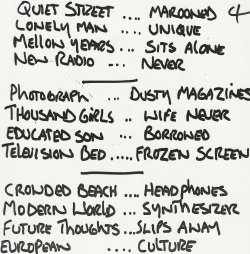 QUIET STREET .... MAROONED 4
LONELY MAN .... UNIQUE
MELLOW YEARS .. SITS ALONE
NEW RADIO ... NEVER
PHOTOGRAPH ... DUSTY MAGAZINES
THOUSAND GIRLS .. WIFE NEVER
EDUCATED SON ... BORROWED
TELEVISION BED ..... FROZEN SCREEN
CROWDED BEACH ... HEADPHONES
MODERN WORLD ... SYNTHESIZER
FUTURE THOUGHTS ... SLIPS AWAY
EUROPEAN .... CULTURE